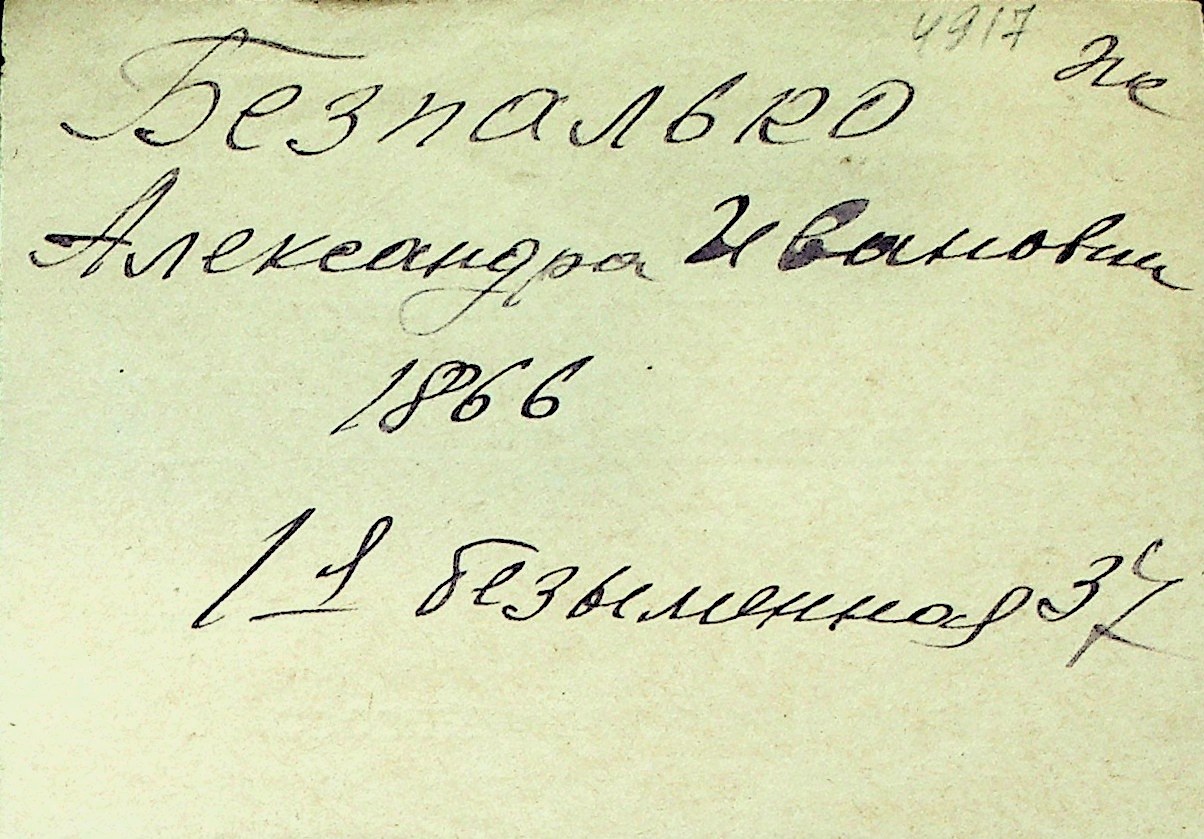 4917
Безпалько
Александра Ивановна
1866
1я безыменная 37